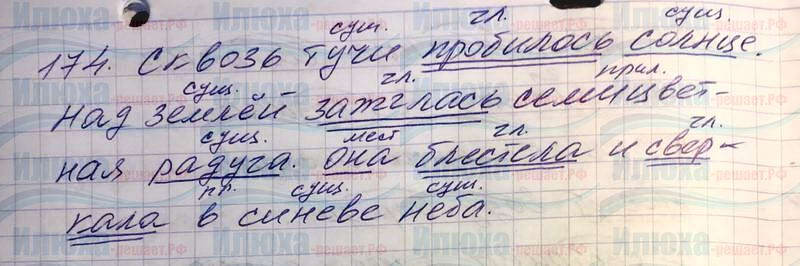 сущ. гл. сущ.
174. Сквозь тучи пробилось солнце.
сущ. гл. прил.
Над землёй зажглась семицвет-
сущ. мест гл. гл.
ная радуга. Она блестела и свер-
пр. сущ. сущ.
кала в синеве неба.